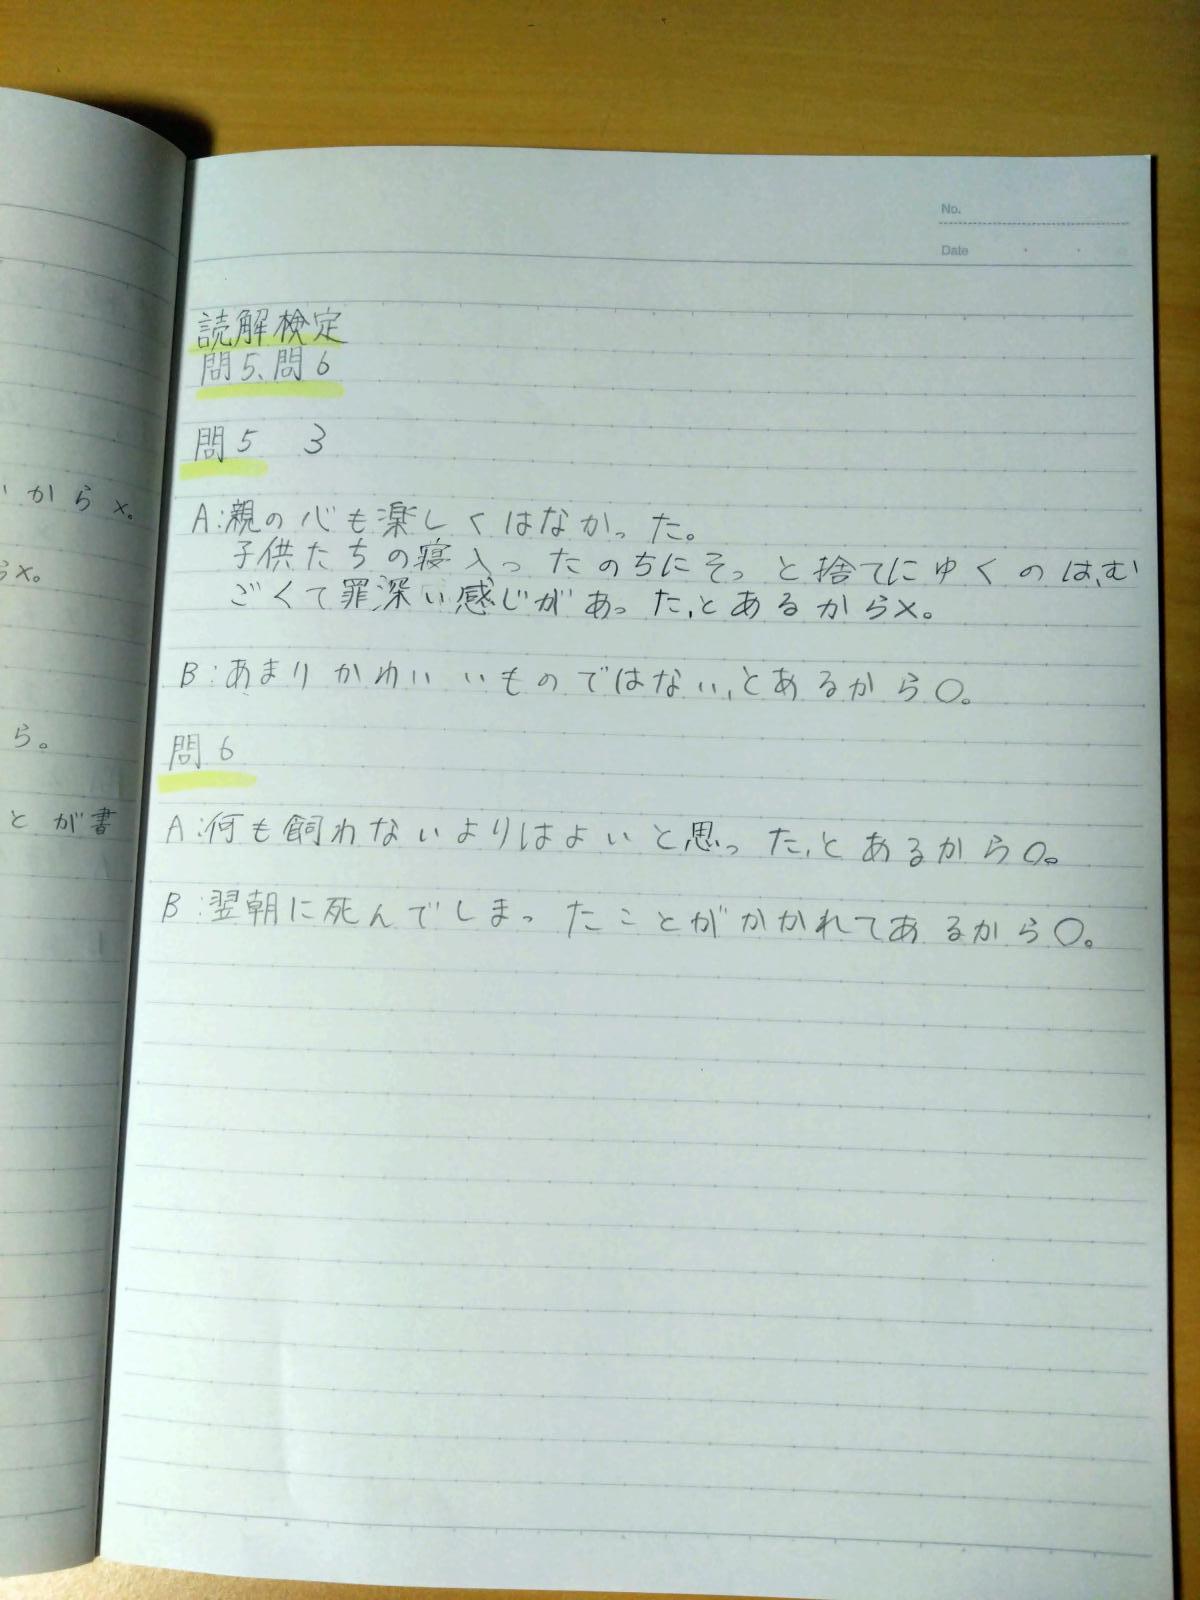 No.
Date
読解検定
問5、問6
問5 3
A:親の心も楽しくはなかった。
子供たちの寝入ったのちにそっと捨てにゆくのは、む
ごくて罪深い感じがあった、とあるから×。
B:あまりかわいいものではない、とあるから○。
問6
A:何も飼わないよりはよいと思った、とあるから○。
B:翌朝に死んでしまったことがかかれてあるから○。
いから×。
ら×。
ら。
とが書